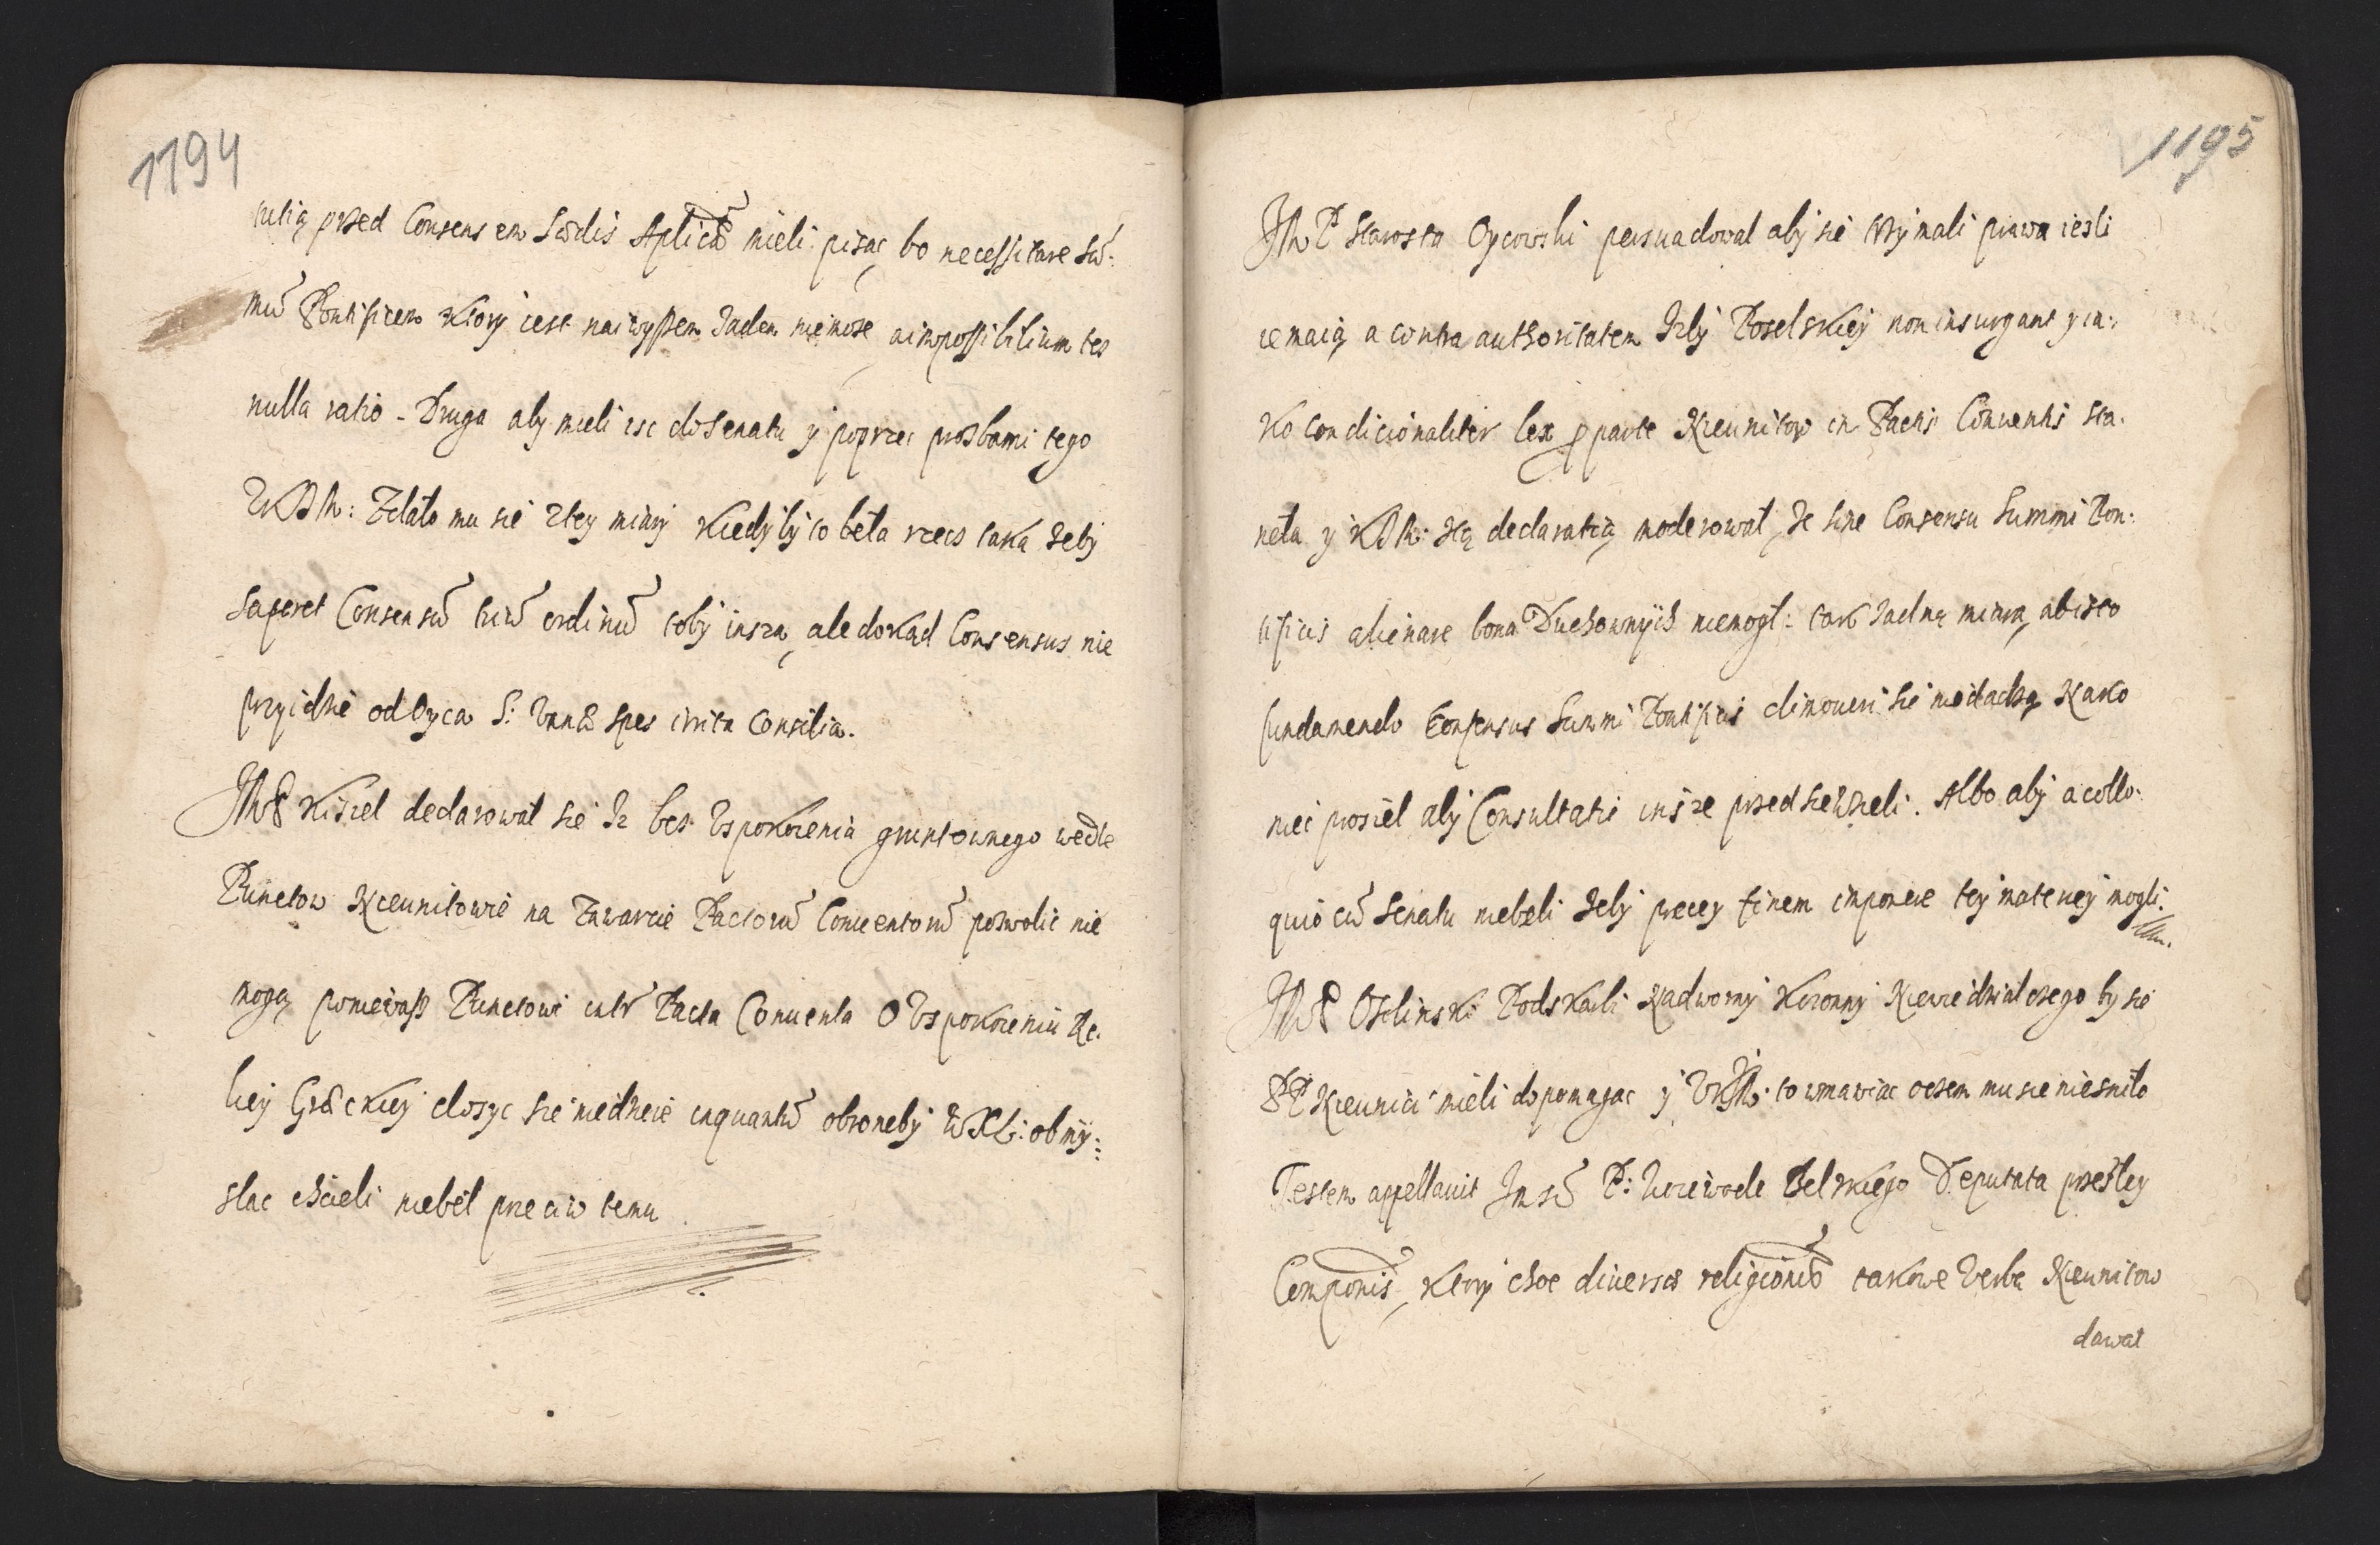 1194
tulią przed Consensem Sedis Aplicæ mieli pisac, bo necessitare Su¯:
mu¯ Pontificem Ktory iest naiwyssem Zaden niemoze, aimpossibilium tes
nulla ratio - Druga aby mieli isc do Senatu y poprzec prosbami tego
UKJM: Zdało mu sie ztey miary Kiedyby to beła rzecz taka zeby
saperet Consensu¯ triu¯ ordinu¯ toby insza, ale dokąd Consensus nie
przyidzie od Oyca S: vanæ spes irrita Consilia.
JMP Kisiel declarował sie Iz bez Uspokoienia gruntownego wedle
Punctow Nieunitowie na Zawarcie Pactoru¯ Conuentoru¯ pozwolic nie
mogą poniewasz Punctowi intr Pacta Conuenta O Uspokoieniu Re-
liey Græckiey dosyc sie niedzieie inquantu¯ obroneby WXL: obmy:
slac chcieli niebeł przeciw temu
1195
JM P Starosta Oycowski persuadował aby sie trzymali prawa iesli
ie maią a contra authoritatem Izby Poselskiey non insurgant y ia:
ko condicionaliter lex parte Nieunitow in Pactis Conuentis sta-
neła y KJM: tą declaratią moderował, Ze sine Consensu Summi Pon:
tificis alienare bona Duchownych niemogł: tak Zadną miarą, ab isto
fundamento Consensus Summi Pontificis dimoueri sie niedadzą Nako
niec prosieł aby Consultatie insze przedsiewzieli. Albo aby a collo:
quio cu¯ Senatu niebeli zeby precey finem imponere tey materyey mogli.
JMP Ossolinski Podskarbi Nadworny Koronny Niewiedział czego by sie
PP Nieunici mieli dopomagac y UKJM: to wmawiac oczem mu sie niesniło
Testem appellauit Imsu¯ P: Woiewode Belskiego Deputata przeszley
Componis, Ktory choc diuersæ religionis takowe Verba Nieunitow
dawał